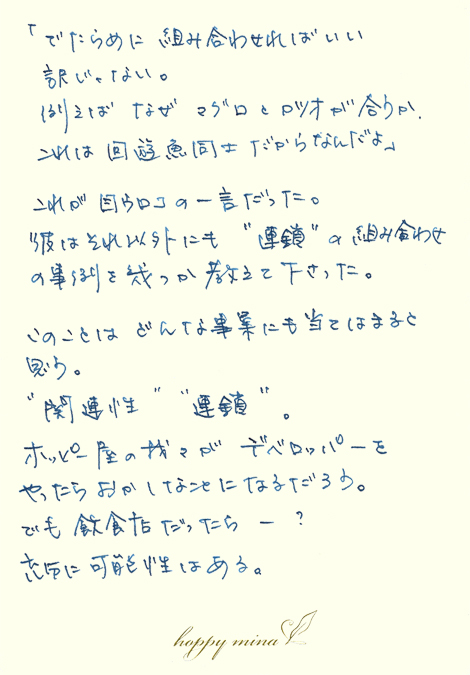 「でたらめに 組み合わせればいい
訳じゃない。
例えば なぜ マグロとカツオが合うか、
これは 回遊魚同士 だからなんだよ」
これが 目ウロコの一言だった。
彼はそれ以外にも "連鎖"の組み合わせ
の事例を幾つか教えて下さった。
このことは どんな事業にも当てはまると
思う。
"関連性" "連鎖"。
ホッピー屋の我々が デベロッパーを
やったらおかしなことになるだろう。
でも 飲食店だったら ー ?
充分に可能性はある。
hoppy mina